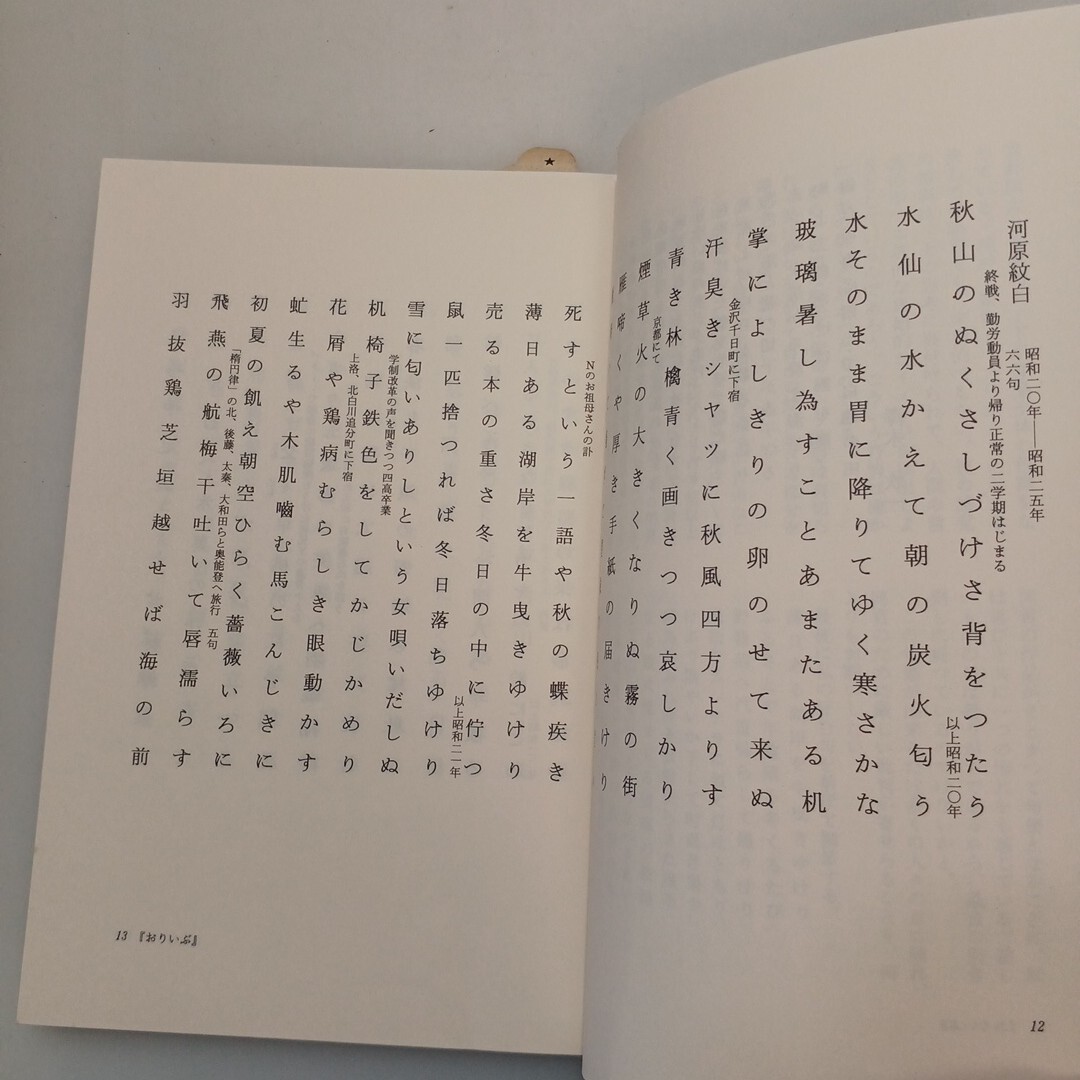 河原紋白
昭和二〇年――昭和二五年
六六句
終戦、勤労動員より帰り正常の二学期はじまる
秋山のぬくさしづけさ背をつたう
以上昭和二〇年
水仙の水かえて朝の炭火匂う
水そのまま胃に降りてゆく寒さかな
玻璃暑し為すことあまたある机
掌によしきりの卵のせて来ぬ
金沢千日町に下宿
汗臭きシャツに秋風四方よりす
青き林檎青く画きつつ哀しかり
京都にて
煙草火の大きくなりぬ霧の街
雁啼くや厚き手紙の届きけり
12
Nのお祖母さんの訃
死すという一語や秋の蝶疾き
薄日ある湖岸を牛曳きゆけり
売る本の重さ冬日の中に佇つ
以上昭和二一年
鼠一匹捨つれば冬日落ちゆけり
雪に匂いありしという女唄いだしぬ
学制改革の声を聞きつつ四高卒業
机椅子鉄色をしてかじかめり
上洛、北白川追分町に下宿
花屑や鶏病むらしき眼動かす
虻生るや木肌嚙む馬こんじきに
初夏の飢え朝空ひらく薔薇いろに
「楕円律」の北、後藤、太秦、大和田らと奥能登へ旅行 五句
飛燕の航梅干吐いて唇濡らす
羽抜鶏芝垣越せば海の前
13 『おりいぶ』